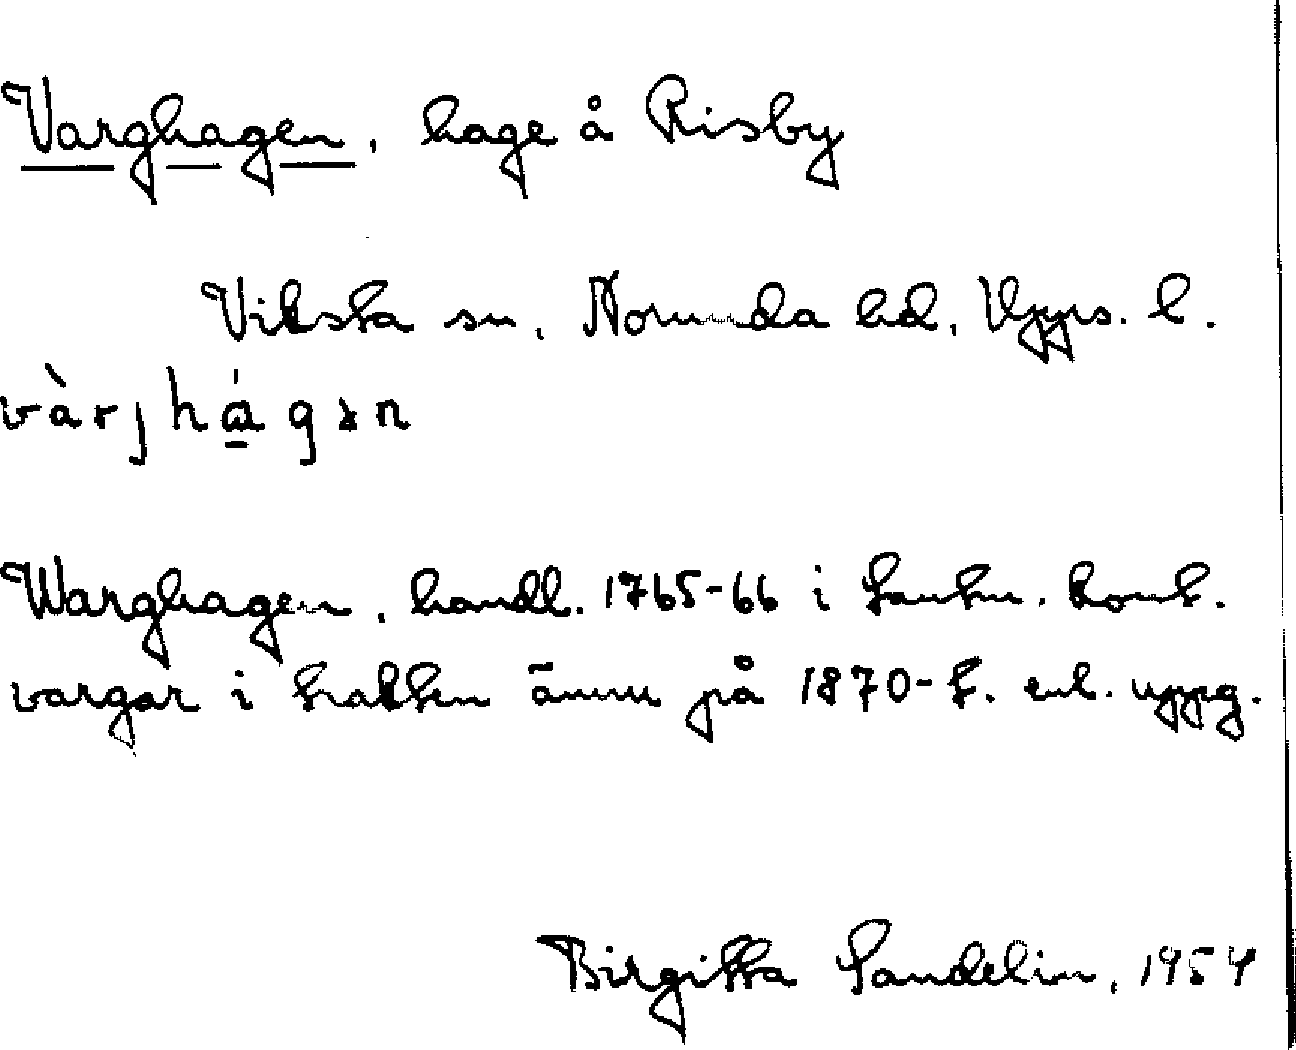 Varghagen, hage å Risby
Viksta sn, Norunda hd, Upps. l.
vàrjhágən
Warghagen, handl. 1765-66 i Lantm. kont.
vargar i trakten ännu på 1870-t. enl. uppg.
Birgitta Sandelin, 1954